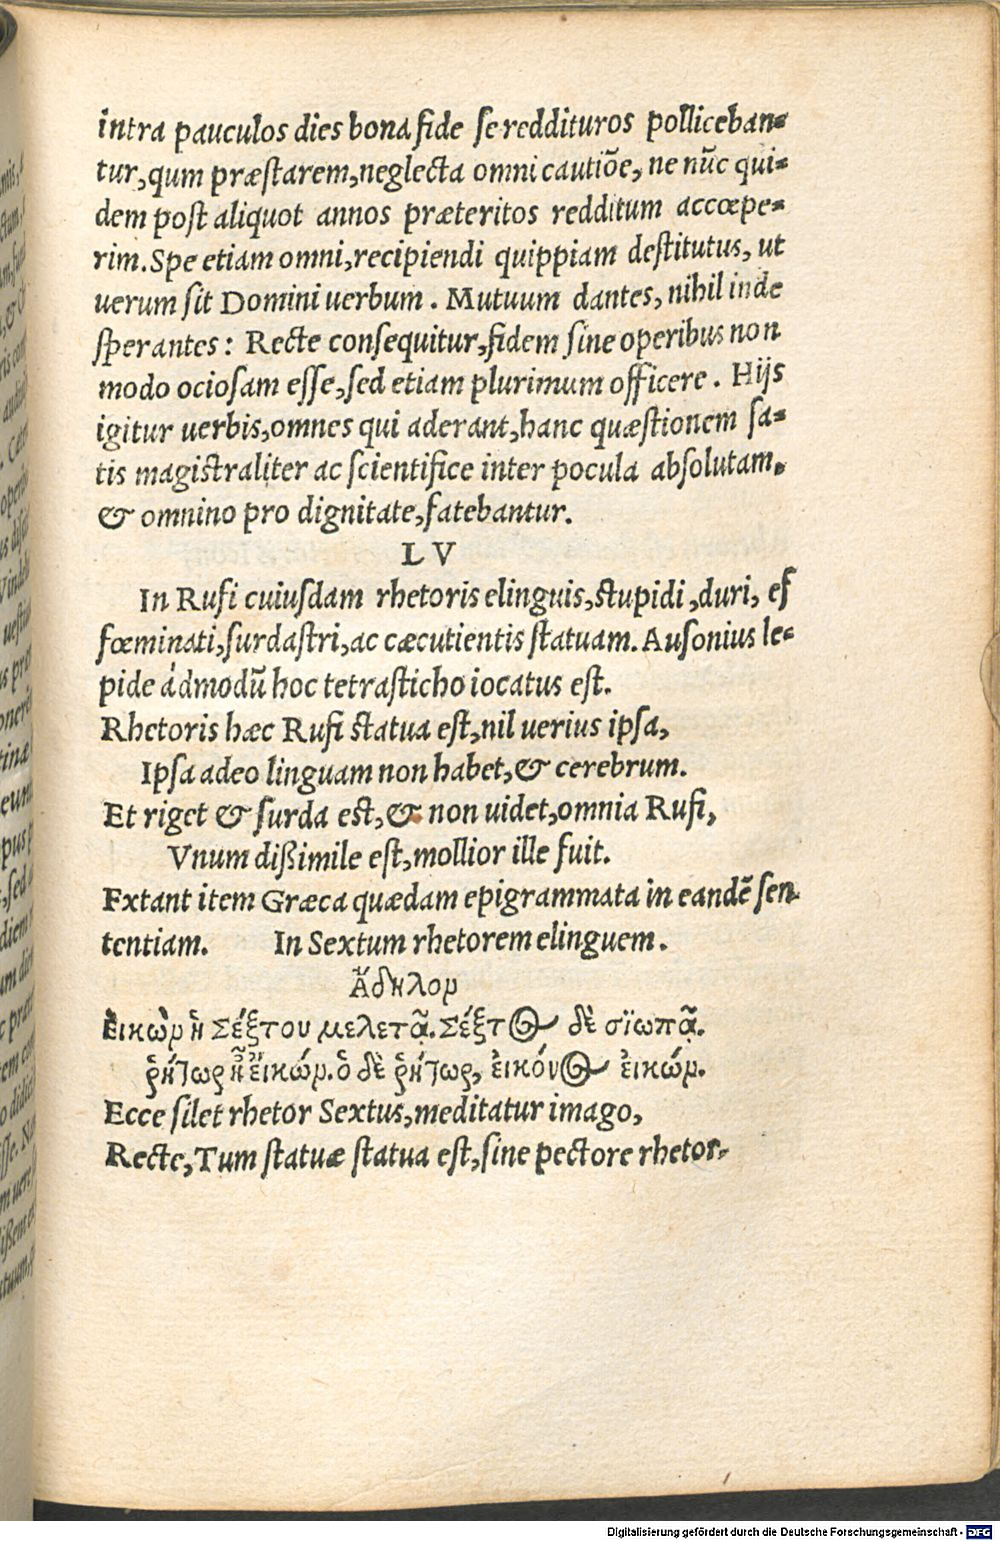 intra pauculos dies bona fide se reddituros polliceban-
tur, qum præstarem, neglecta omni cautiōe, ne nūc qui-
dem post aliquot annos præteritos redditum accœpe-
rim. Spe etiam omni, recipiendi quippiam destitutus, ut
uerum sit Domini uerbum. Mutuum dantes, nihil inde
sperantes: Recte consequitur, fidem sine operibus non
modo ociosam esse, sed etiam plurimum officere. Hijs
igitur uerbis, omnes qui aderant, hanc quæstionem sa-
tis magistraliter ac scientifice inter pocula absolutam,
& omnino pro dignitate, fatebantur.
LV
In Rufi cuiusdam rhetoris elinguis, stupidi, duri, ef
fœminati, surdastri, ac cæcutientis statuam. Ausonius le-
pide admodū hoc tetrasticho iocatus est.
Rhetoris hæc Rufi statua est, nil uerius ipsa,
Ipsa adeo linguam non habet, & cerebrum.
Et riget & surda est, & non uidet, omnia Rufi,
Vnum dißimile est, mollior ille fuit.
Extant item Græca quædam epigrammata in eandē sen
tentiam. In Sextum rhetorem elinguem.
Ἄδηλον
Εἰκὼν ἡ Σέξτου μελετᾷ. Σέξτος δὲ σϊωπᾷ.
ῥήτωρ ἦν εἰκών. ὁ δὲ ῥήτωρ, εἰκόνος εἰκών.
Ecce silet rhetor Sextus, meditatur imago,
Recte, Tum statuæ statua est, sine pectore rhetor.
Digitalisierung gefördert durch die Deutsche Forschungsgemeinschaft - DFG